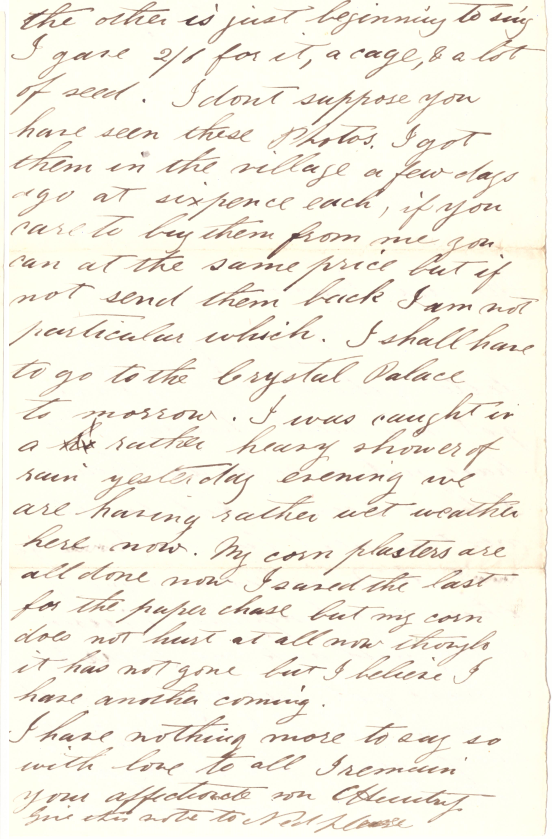 the other is just beginning to sing
I gave 2/6 for it, a cage, & a lot
of seed. I dont suppose you
have seen these Photos. I got
them in the village a few days
ago at sixpence each, if you
care to buy them from me you
can at the same price but if
not send them back I am not
particular which. I shall have
to go to the Crystal Palace
to morrow. I was caught in
a rather heavy shower of
rain yesterday evening we
are having rather wet weather
here now. My corn plasters are
all done now I saved the last
for the paper chase but my corn
does not hurt at all now though
it has not gone but I believe I
have another coming.
I have nothing more to say so
with love to all I remain
your affectionate son
Give this note to Ned please